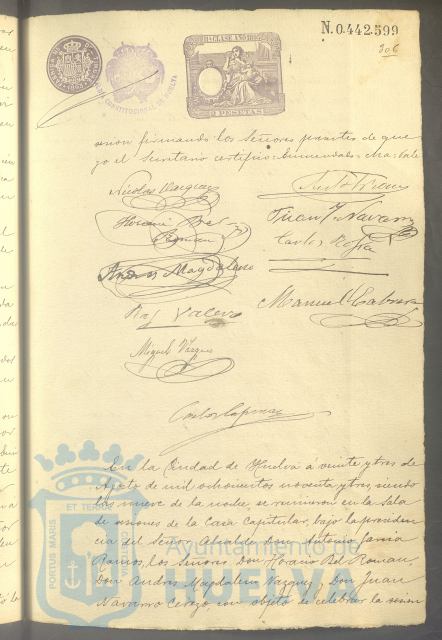 N. 0.442.599
306
11ª CLASE AÑO 1893
PESETAS
CONSTITUCIONAL DE HUELVA
sesion firmando los Señores presentes de que
yo el Secretario certifico = Enmendado = Vale
Nicolas Vazquez
Horacio Bel
Roman
Juan J. Navarro
Carlos
Andres Magdaleno
Raf Valero
Manuel Cabrera
Miguel Vazquez
En la Ciudad de Huelva á veinte y tres de
Agosto de mil ochocientos noventa y tres, siendo
las nueve de la noche, se reunieron en la Sala
de sesiones de la Casa Capitular, bajo la presiden
cia del Señor Alcalde don Antonio Garcia
Ramos, los Señores, Don Horacio Bel Roman,
Don Andres Magdaleno Vazquez, Don Juan
Navarro Cerezo con objeto de celebrar la sesion
PORTUS MARIS
ET TERRAE
CUSTODIA
Ayuntamiento de
HUELVA